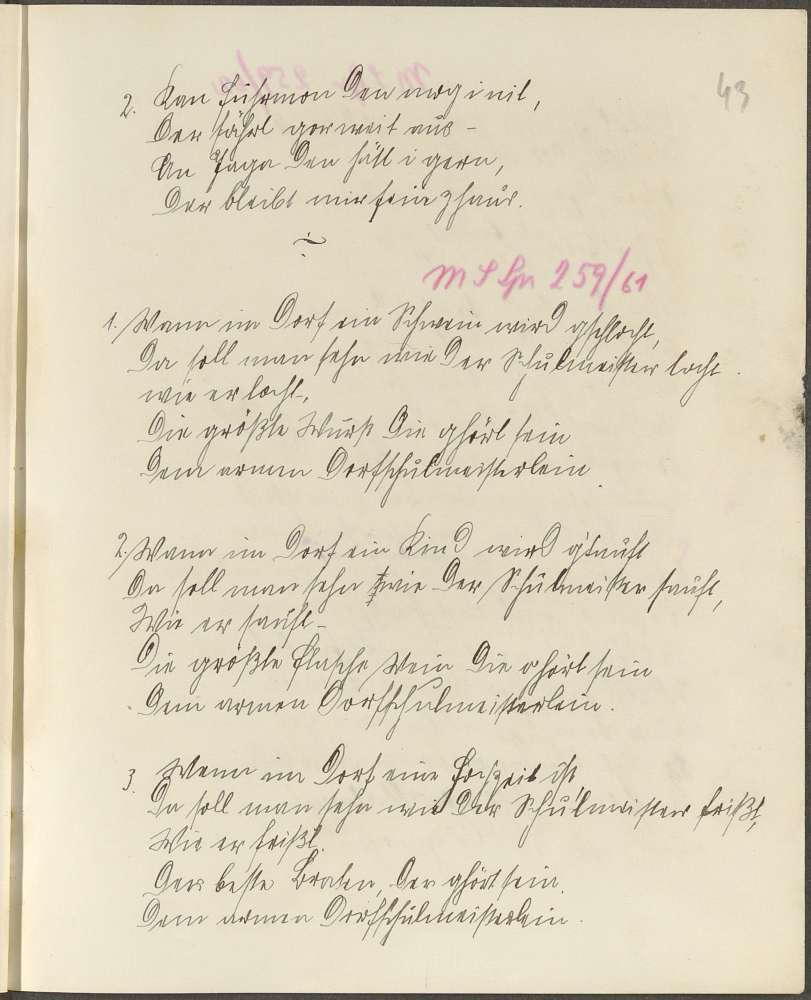 43
2. Kan Fuhrmon den mog i nit,
Der fährt gor weit aus -
An Jaga den hätt i gern,
Der bleibt mir fein z'haus.
259/61
1. Wann im Dorf ein Schwein wird gschlocht,
Da soll man sehn wie der Schulmeister locht
wie er locht,
Die größte Wurst die ghört sein
Dem armen Dorfschulmeisterlein.
2. Wann im Dorf ein Kind wird g'tauft
Da soll man sehn wie der Schulmeister sauft,
Wie er sauft -
Die größte Flasche Wein die ghört sein
Dem armen Dorfschulmeisterlein.
3. Wenn im Dorf eine Hochzeit ist
Da soll man sehn wie der Schulmeister frißt,
Wie er frißt.
Der beste Braten, der ghört sein
Dem armen Dorfschulmeisterlein.